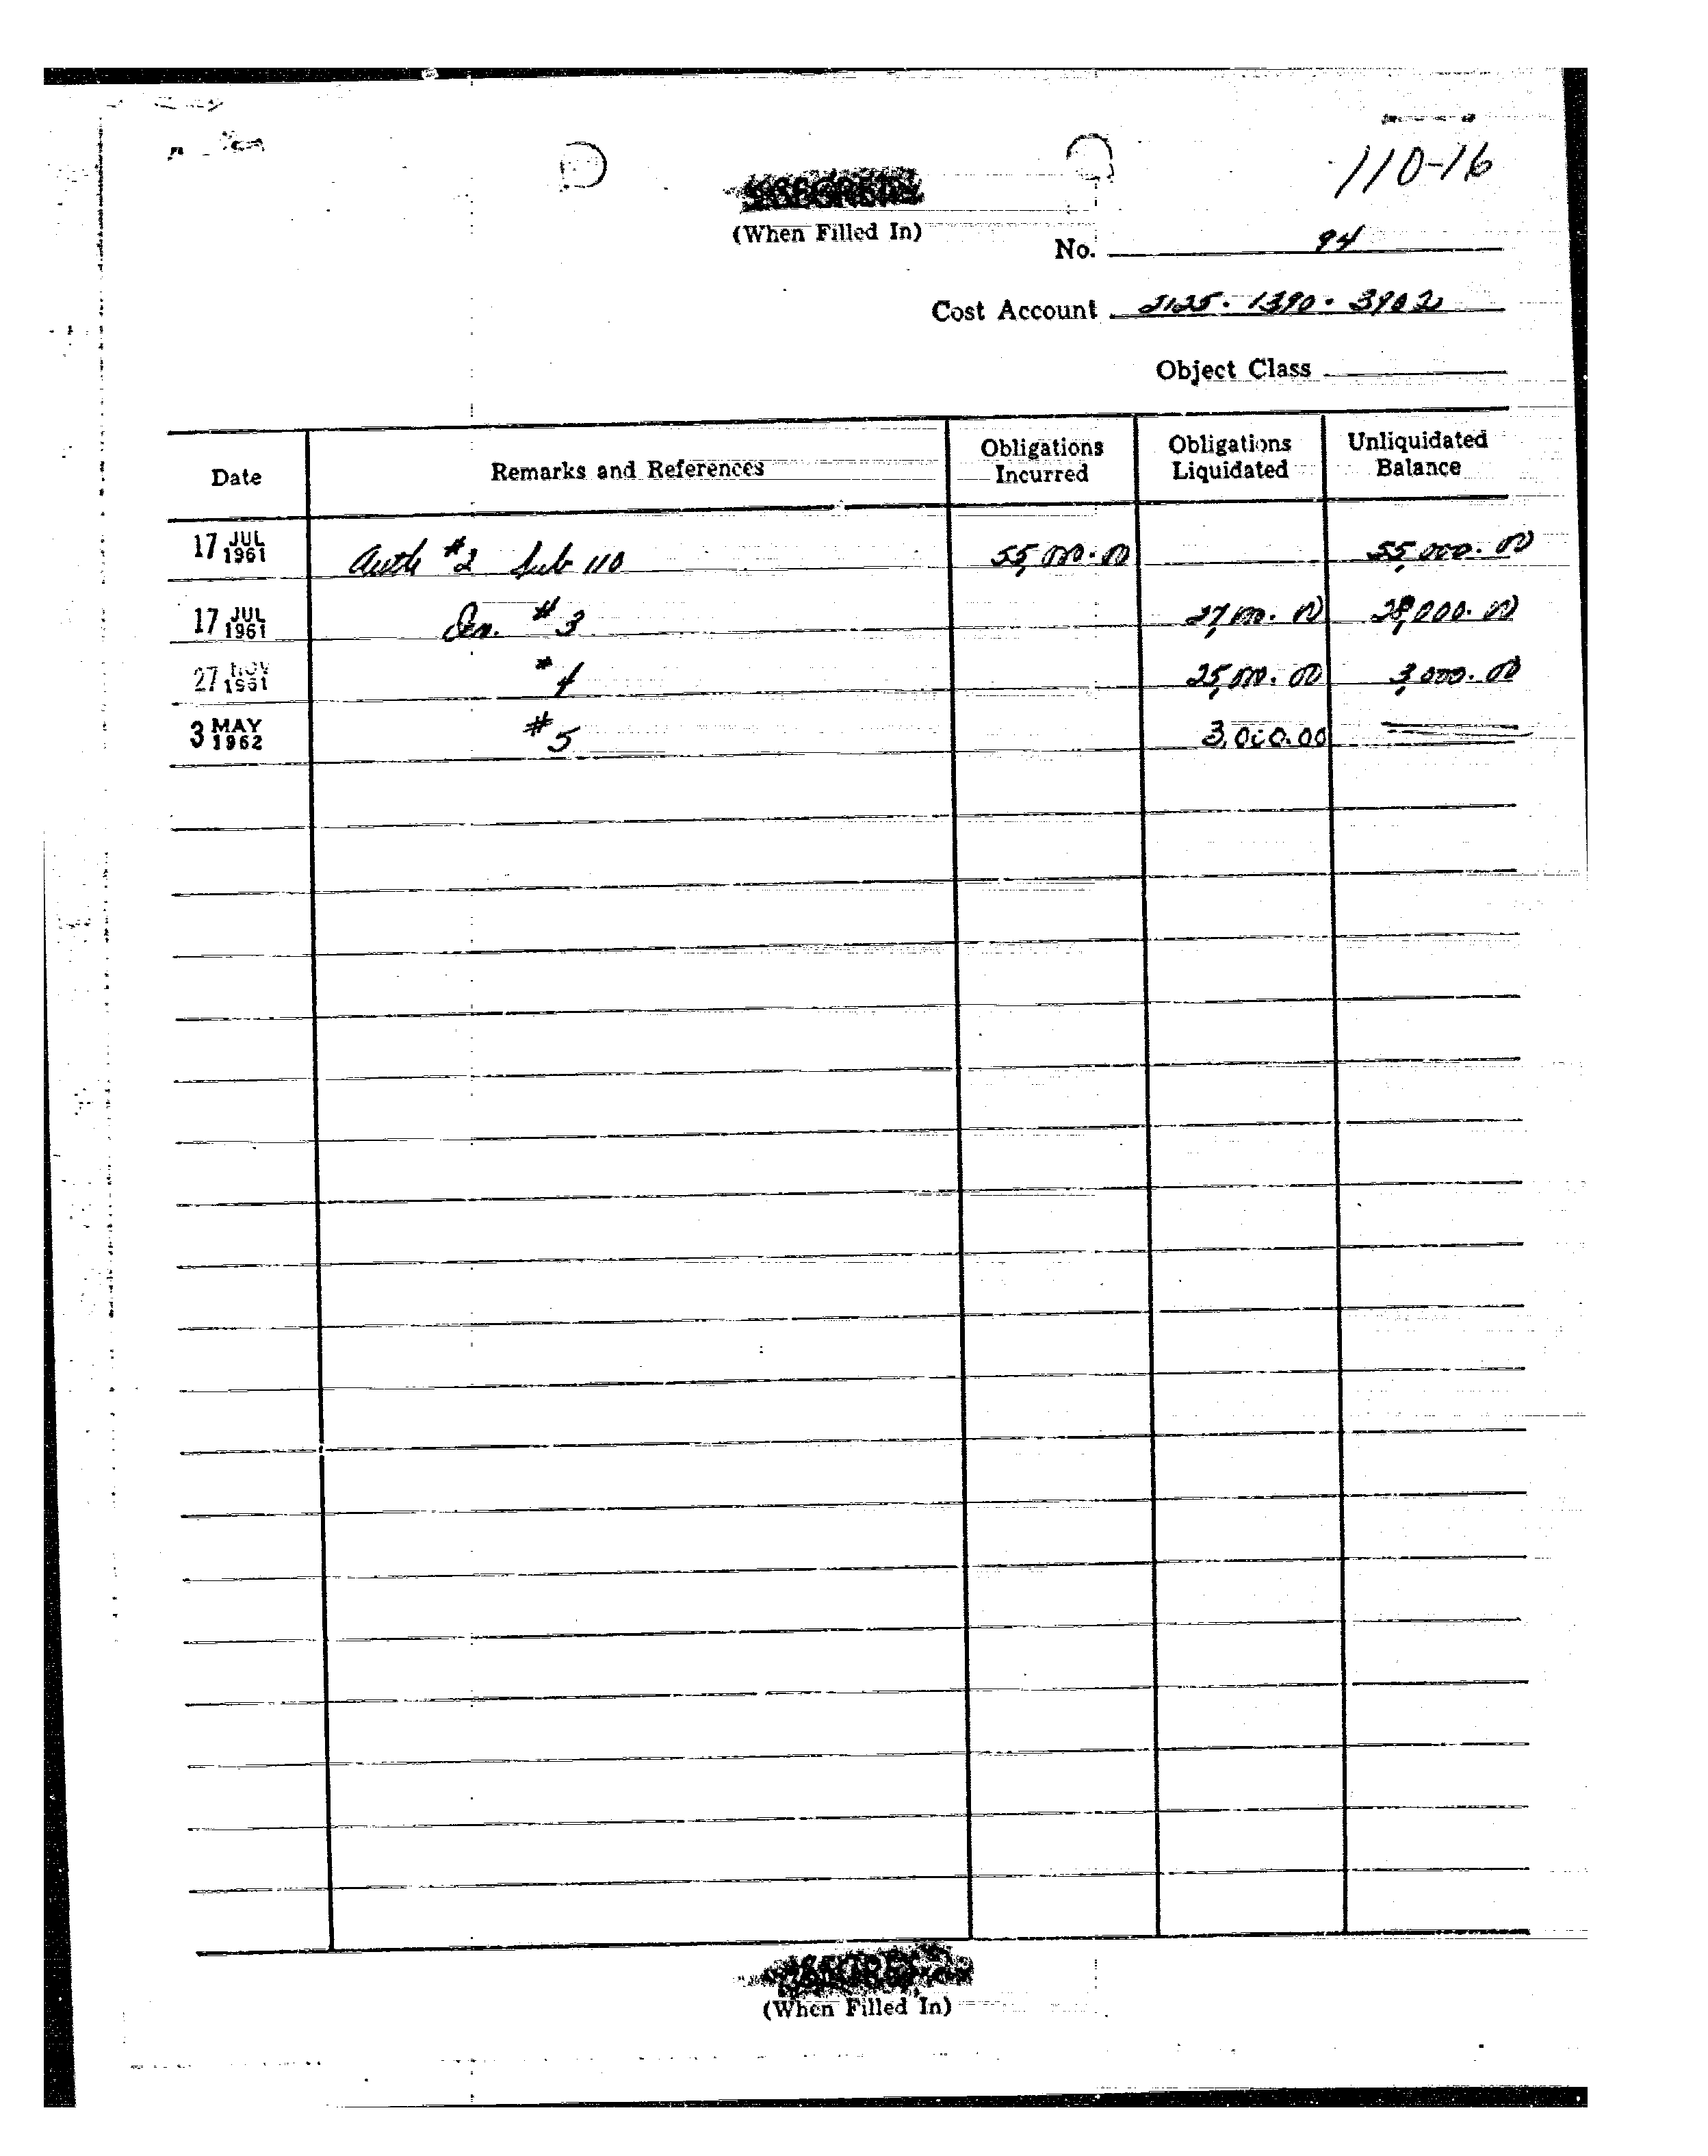 110-16
(When Filled In)
No. 94
Cost Account 2125-1390-3902
Object Class
Date Remarks and References Obligations Incurred Obligations Liquidated Unliquidated Balance
17 JUL 1961 Auth #2 Sub 110 55,000.00 55,000.00
17 JUL 1961 #3 27,000.00 28,000.00
27 NOV 1961 #4 25,000.00 3,000.00
3 MAY 1962 #5 3,000.00
(When Filled In)